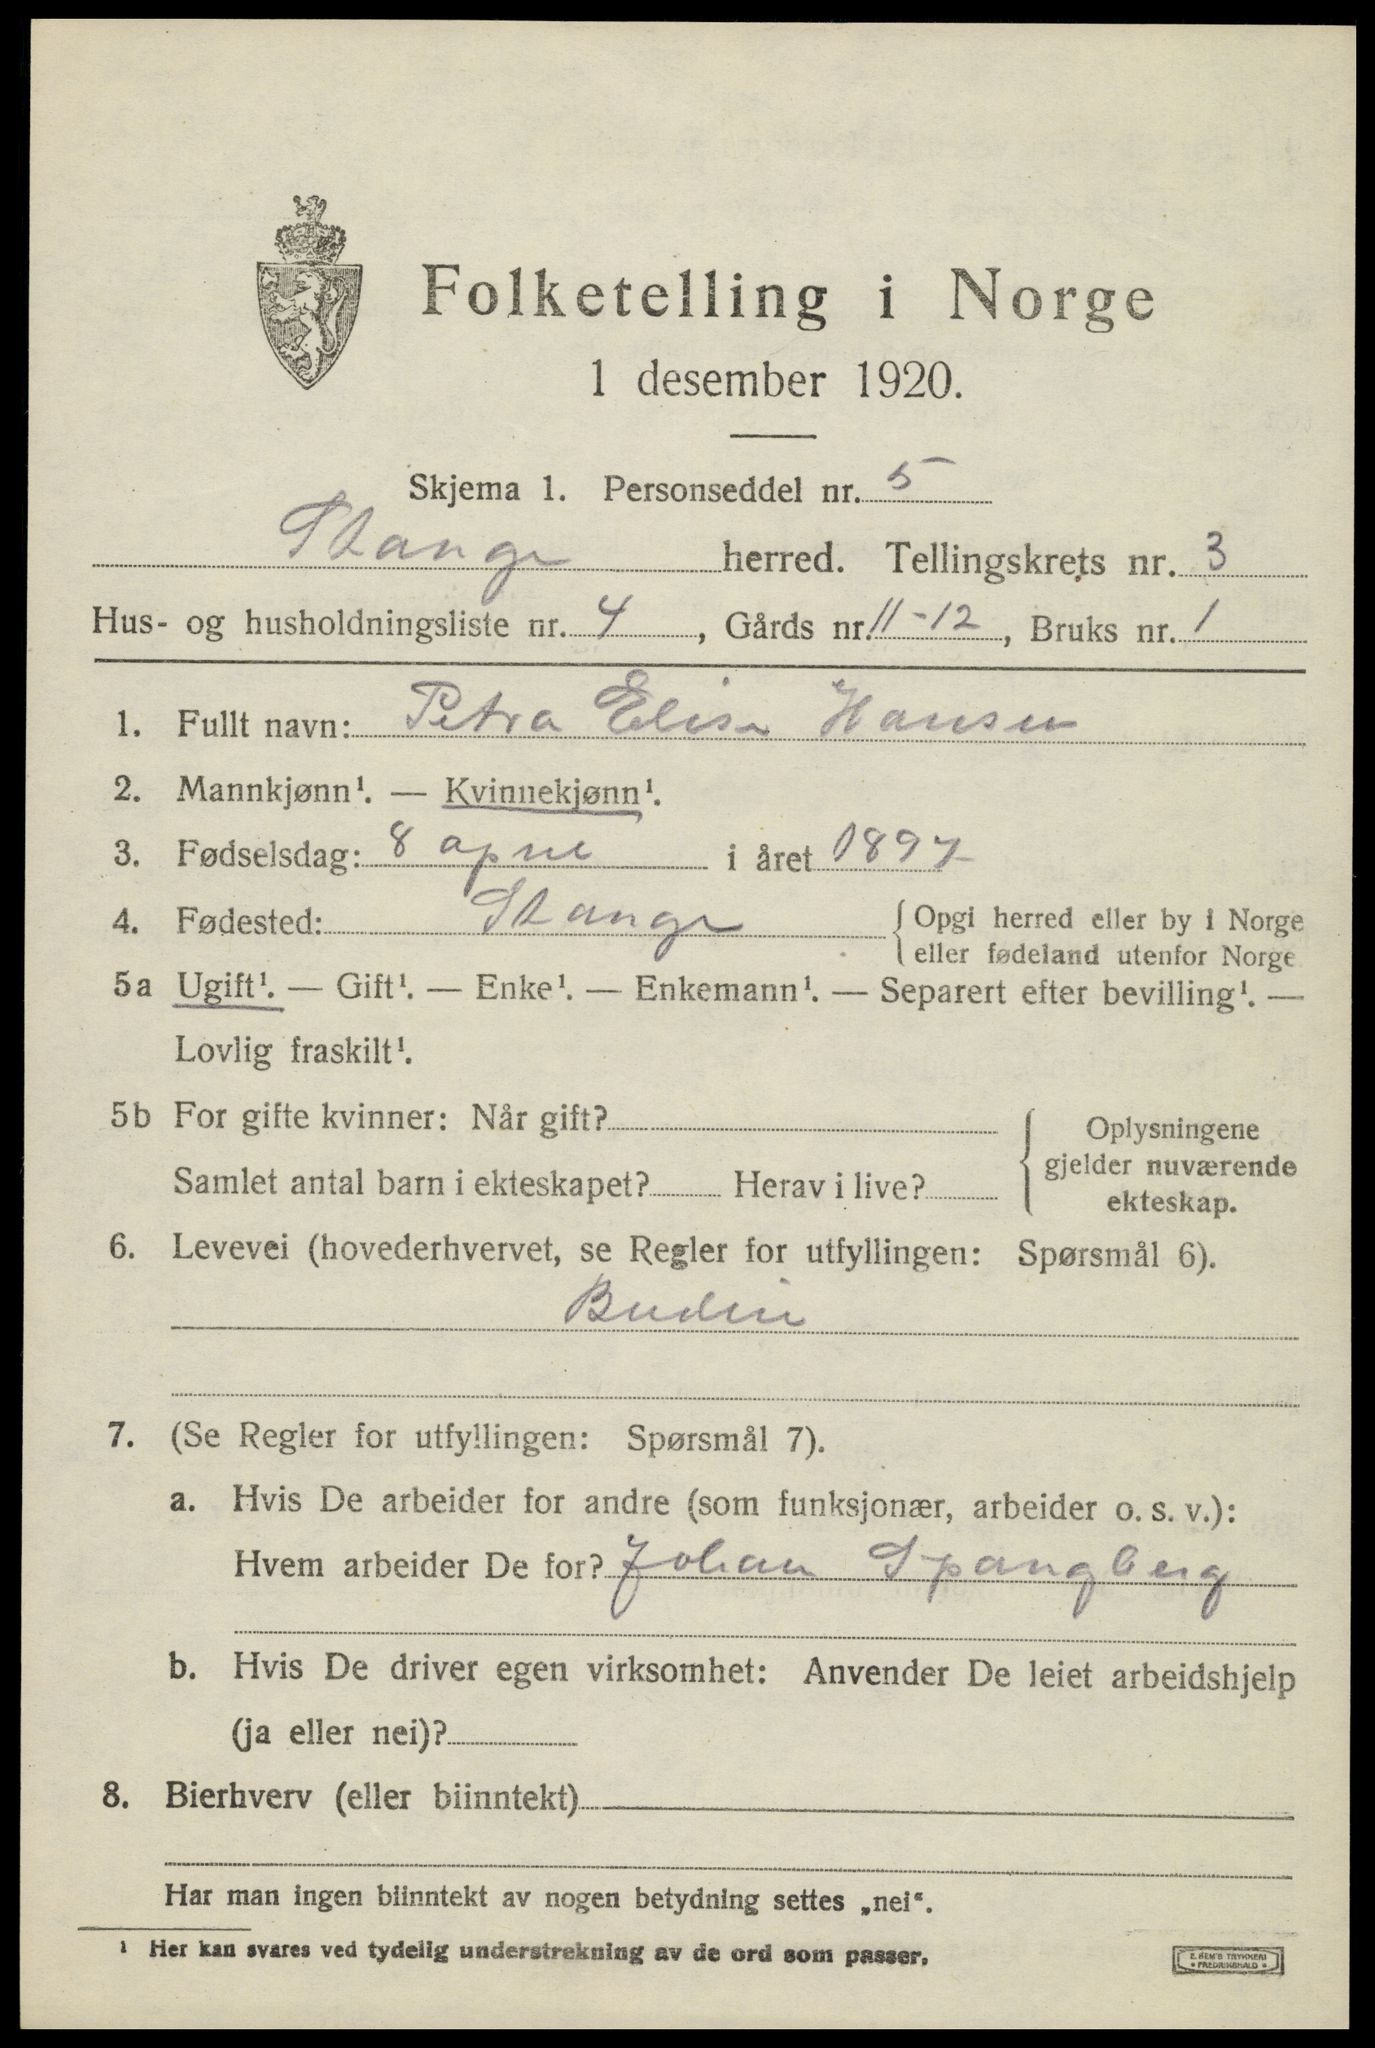 Folketelling i Norge
1 desember 1920.
Skjema 1. Personseddel nr. 5
Stange herred. Tellingskrets nr. 3
Hus- og husholdningsliste nr. 4, Gårds nr. 11-12, Bruks nr. 1
1. Fullt navn: Petra Elise Hansen
2. Mannkjønn¹. — Kvinnekjønn¹.
3. Fødselsdag: 8 april i året 1897
4. Fødested: Stange { Opgi herred eller by i Norge
eller fødeland utenfor Norge
5a Ugift¹. — Gift¹. — Enke¹. — Enkemann¹. — Separert efter bevilling¹. —
Lovlig fraskilt¹.
5b For gifte kvinner: Når gift?
Samlet antal barn i ekteskapet? Herav i live?
Oplysningene
gjelder nuværende
ekteskap.
6. Levevei (hovederhvervet, se Regler for utfyllingen: Spørsmål 6).
Budeie
7. (Se Regler for utfyllingen: Spørsmål 7).
a. Hvis De arbeider for andre (som funksjonær, arbeider o. s. v.):
Hvem arbeider De for? Johan Spangberg
b. Hvis De driver egen virksomhet: Anvender De leiet arbeidshjelp
(ja eller nei)?
8. Bierhverv (eller biinntekt)
Har man ingen biinntekt av nogen betydning settes „nei“.
¹ Her kan svares ved tydelig understrekning av de ord som passer.
E. SEM'S TRYKKERI
• FREDRIKSHALD •